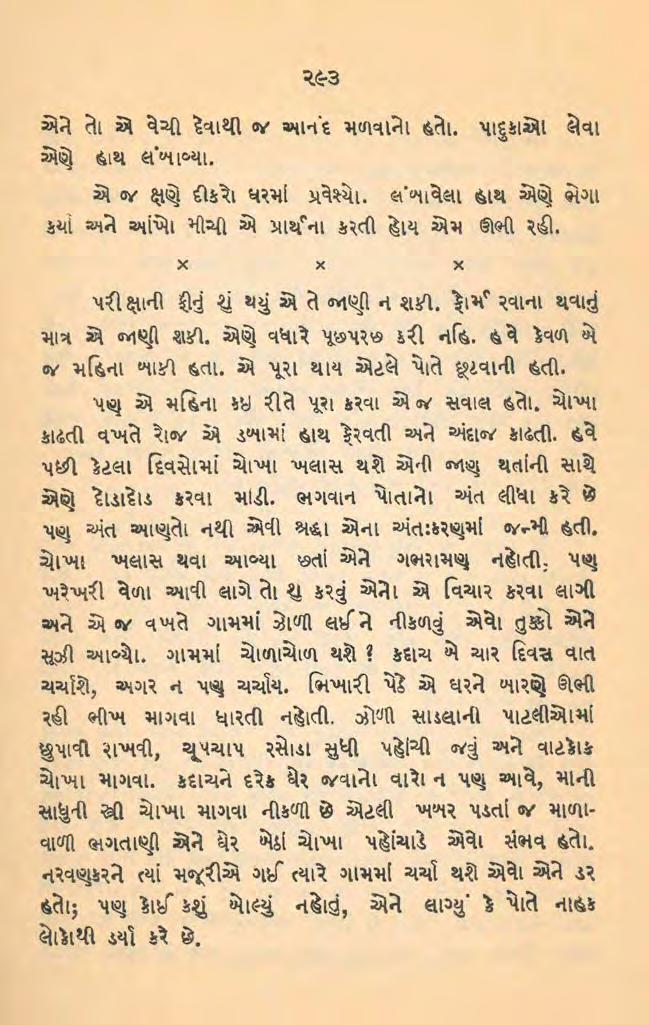 ૨૯૩
એને તો એ વેચી દેવાથી જ આનંદ મળવાનો હતો. પાદુકાઓ લેવા
એણે હાથ લંબાવ્યા.
એ જ ક્ષણે દીકરો ઘરમાં પ્રવેશ્યો. લંબાવેલા હાથ એણે ભેગા
કર્યા અને આંખો મીચી એ પ્રાર્થના કરતી હોય એમ ઊભી રહી.
× × ×
પરીક્ષાની ફીનું શું થયું એ તે જાણી ન શકી. ફોર્મ રવાના થવાનું
માત્ર એ જાણી શકી. એણે વધારે પૂછપરછ કરી નહિ. હવે કેવળ બે
જ મહિના બાકી હતા. એ પૂરા થાય એટલે પોતે છૂટવાની હતી.
પણ એ મહિના કઇ રીતે પૂરા કરવા એ જ સવાલ હતો. ચોખા
કાઢતી વખતે રોજ એ ડબામાં હાથ ફેરવતી અને અંદાજ કાઢતી. હવે
પછી કેટલા દિવસોમાં ચોખા ખલાસ થશે એની જાણ થતાંની સાથે
એણે દોડાદોડ કરવા માંડી. ભગવાન પોતાનો અંત લીધા કરે છે
પણ અંત આણતો નથી એવી શ્રદ્ધા એના અંતઃકરણમાં જન્મી હતી.
ચોખા ખલાસ થવા આવ્યા છતાં એને ગભરામણ નહોતી; પણ
ખરેખરી વેળા આવી લાગે તો શુ કરવું એનો એ વિચાર કરવા લાગી
અને એ જ વખતે ગામમાં ઝોળી લઈને નીકળવું એવો તુક્કો એને
સૂઝી આવ્યો. ગામમાં ચોળાચોળ થશે ? કદાચ બે ચાર દિવસ વાત
ચર્ચાશે, અગર ન પણ ચર્ચાય. ભિખારી પેઠે એ ઘરને બારણે ઊભી
રહી ભીખ માગવા ધારતી નહોતી. ઝોળી સાડલાની પાટલીઓમાં
છુપાવી રાખવી, ચૂપચાપ રસોડા સુધી પહોંચી જવું અને વાટકોક
ચોખા માગવા. કદાચને દરેક ઘેર જવાનો વારો ન પણ આવે, માની
સાધુની સ્ત્રી ચોખા માગવા નીકળી છે એટલી ખબર પડતાં જ માળા-
વાળી ભગતાણી એને ઘેર બેઠાં ચોખા પહોંચાડે એવો સંભવ હતો.
નરવણકરને ત્યાં મજૂરીએ ગઈ ત્યારે ગામમાં ચર્ચા થશે એવો એને ડર
હતો; પણ કોઈ કશું બોલ્યું નહોતું, એને લાગ્યું કે પોતે નાહક
લોકોથી ડર્યા કરે છે.